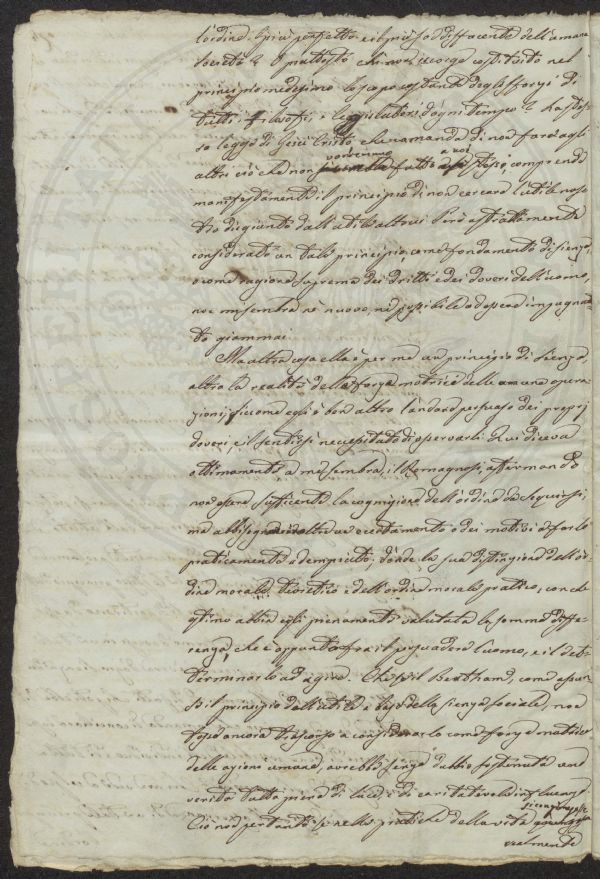 l'ordine il più perfetto e il più soddisfacente dell'umana
società? O piuttosto chi non iscorge costituito nel
principio medesimo lo scopo costante degli sforzi di
tutti i filosofi, e legislatori d'ogni tempo? La stes-
sa legge di Gesù Cristo che comanda di non fare agli
altri ciò che non vorremmo fatto a noi stessi, comprende
manifestamente il principio di non cercare l'utile nos-
tro disgiunto dall'utile altrui. Però astrattamente
considerato un tale principio, come fondamento di scienza,
o come ragione suprema dei dritti e dei doveri dell'uomo,
non mi sembra nè nuovo, nè possibile ad essere impugna-
to giammai.
Ma altra cosa ella è per me un principio di scienza,
altro la realità della forza motrice delle umane opera-
zioni; siccome egli è ben altro l'andare persuaso dei proprj
doveri, e il sentirsi necessitato di osservarli. Qui diceva
ottimamente, a me sembra, il Romagnosi, affermando
non essere sufficiente la cognizione dell'ordine da seguirsi,
ma abbisognare inoltre un eccitamento o dei motivi a farlo
praticamente adempiuto; donde la sua distinzione dell'or-
dine morale teoretico e dell'ordine morale pratico, con che
ottimo abbia egli pienamente valutata la somma diffe-
renza, che è appunto fra il persuadere l'uomo, e il de-
terminarlo ad agire. Che se il Bentham, come assun-
se il principio dell'utile a base della scienza sociale, non
fosse ancora trascorso a considerarlo come forza motrice
delle azioni umane, avrebbe senza dubbio sostenuta una
verità tutta piena di luce, e di caritatevole influenza.
Ciò non pertanto se nelle pratiche della vita si congiungesse
realmente